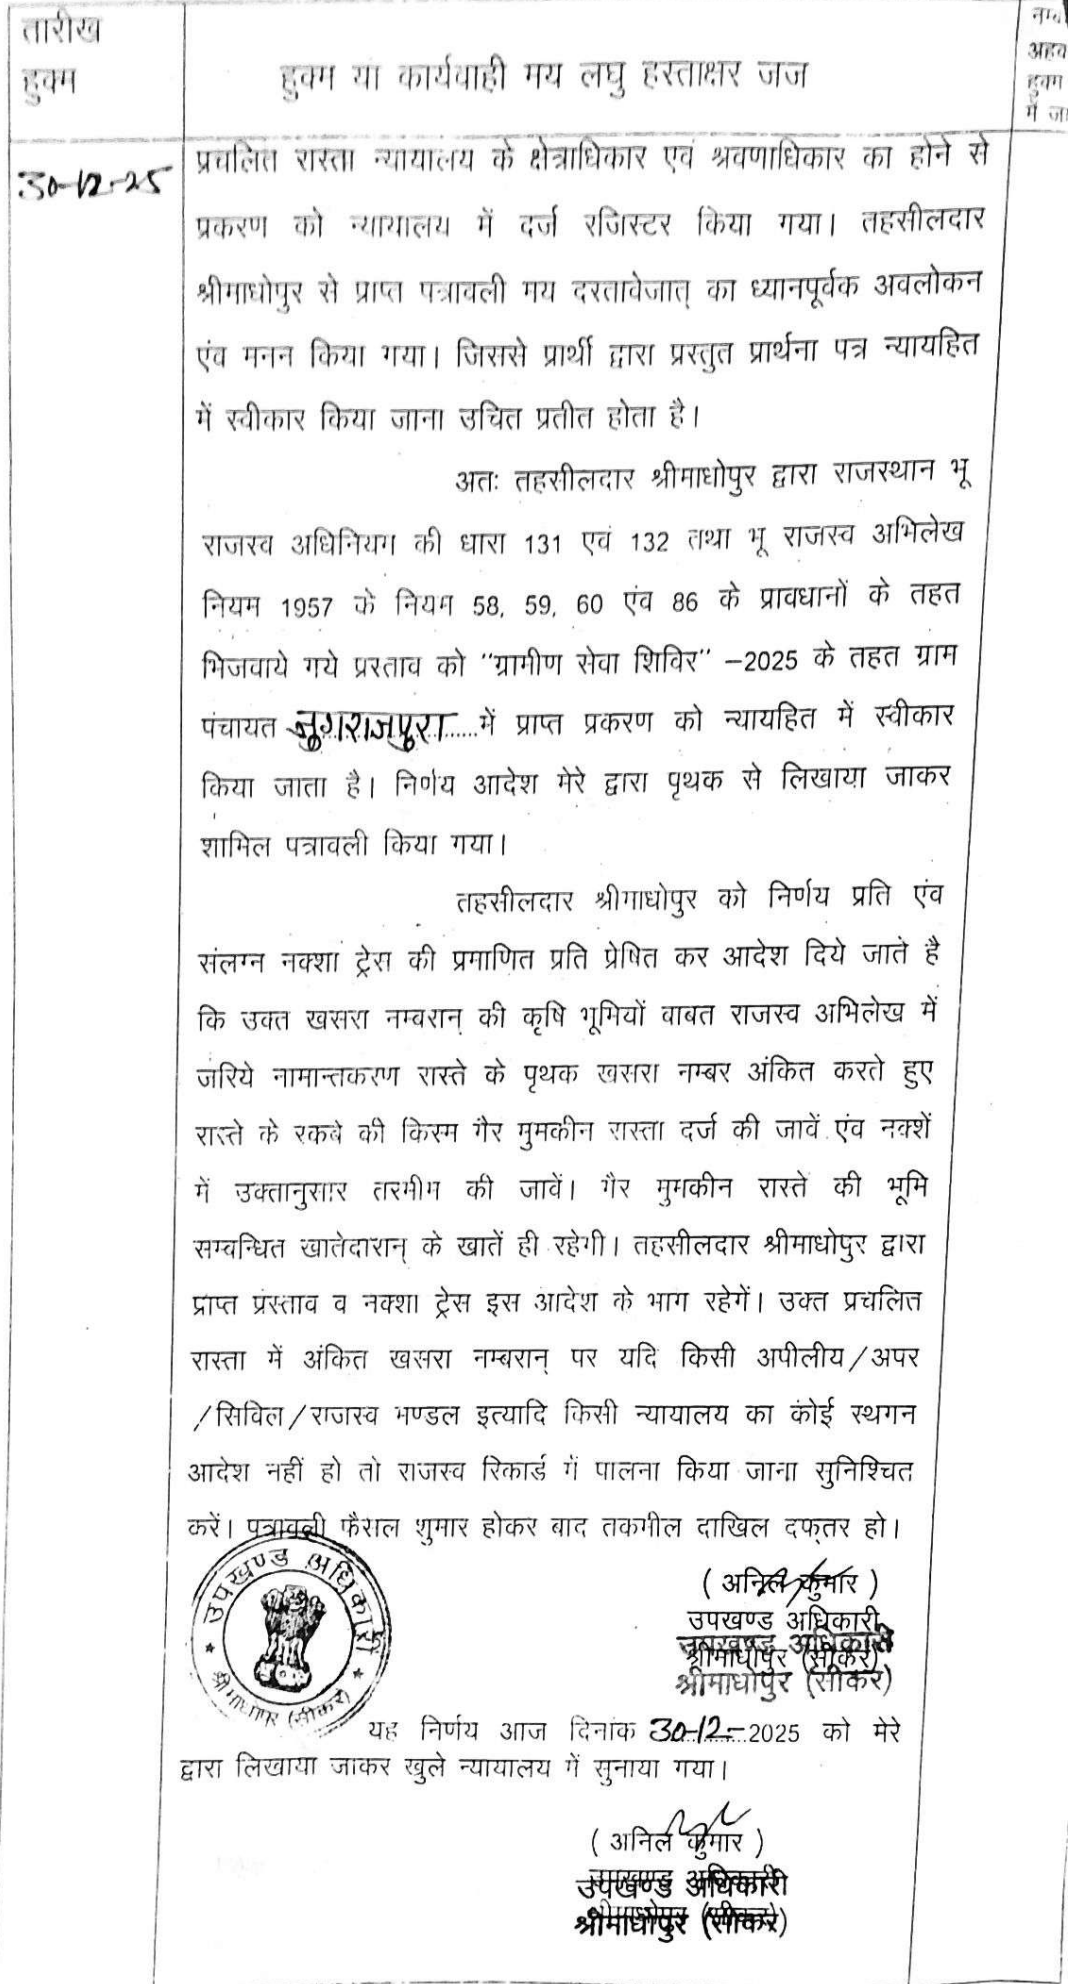 तारीख
हुक्म
हुक्म या कार्यवाही मय लघु हस्ताक्षर जज
अहव
हुक्म
में जा
30-12-25
प्रचलित रास्ता न्यायालय के क्षेत्राधिकार एवं श्रवणाधिकार का होने से
प्रकरण को न्यायालय में दर्ज रजिस्टर किया गया। तहसीलदार
श्रीमाधोपुर से प्राप्त पत्रावली मय दस्तावेजात् का ध्यानपूर्वक अवलोकन
एंव मनन किया गया। जिससे प्रार्थी द्वारा प्रस्तुत प्रार्थना पत्र न्यायहित
में स्वीकार किया जाना उचित प्रतीत होता है।
अतः तहसीलदार श्रीमाधोपुर द्वारा राजस्थान भू
राजस्व अधिनियम की धारा 131 एवं 132 तथा भू राजस्व अभिलेख
नियम 1957 के नियम 58, 59, 60 एंव 86 के प्रावधानों के तहत
भिजवाये गये प्रस्ताव को "ग्रामीण सेवा शिविर" –2025 के तहत ग्राम
पंचायत जुगराजपुरा......में प्राप्त प्रकरण को न्यायहित में स्वीकार
किया जाता है। निर्णय आदेश मेरे द्वारा पृथक से लिखाया जाकर
शामिल पत्रावली किया गया।
तहसीलदार श्रीमाधोपुर को निर्णय प्रति एंव
संलग्न नक्शा ट्रेस की प्रमाणित प्रति प्रेषित कर आदेश दिये जाते है
कि उक्त खसरा नम्बरान् की कृषि भूमियों बाबत राजस्व अभिलेख में
जरिये नामान्तकरण रास्ते के पृथक खसरा नम्बर अंकित करते हुए
रास्ते के रकबे की किस्म गैर मुमकीन रास्ता दर्ज की जावें एंव नक्शें
में उक्तानुसार तरमीम की जावें। गैर मुमकीन रास्ते की भूमि
सम्बन्धित खातेदारान् के खातें ही रहेगी। तहसीलदार श्रीमाधोपुर द्वारा
प्राप्त प्रस्ताव व नक्शा ट्रेस इस आदेश के भाग रहेगें। उक्त प्रचलित
रास्ता में अंकित खसरा नम्बरान् पर यदि किसी अपीलीय/अपर
/सिविल/राजस्व मण्डल इत्यादि किसी न्यायालय का कोई स्थगन
आदेश नहीं हो तो राजस्व रिकार्ड में पालना किया जाना सुनिश्चित
करें। पत्रावली फैसल शुमार होकर बाद तकमील दाखिल दफ्तर हो।
उपखण्ड अधिकारी
श्रीमाधोपुर (सीकर)
( अनिल कुमार )
उपखण्ड अधिकारी
उपखण्ड अधिकारी
श्रीमाधोपुर (सीकर)
श्रीमाधोपुर (सीकर)
यह निर्णय आज दिनांक 30-12-2025 को मेरे
द्वारा लिखाया जाकर खुले न्यायालय में सुनाया गया।
( अनिल कुमार )
उपखण्ड अधिकारी
उपखण्ड अधिकारी
श्रीमाधोपुर (सीकर)
श्रीमाधोपुर (सीकर)